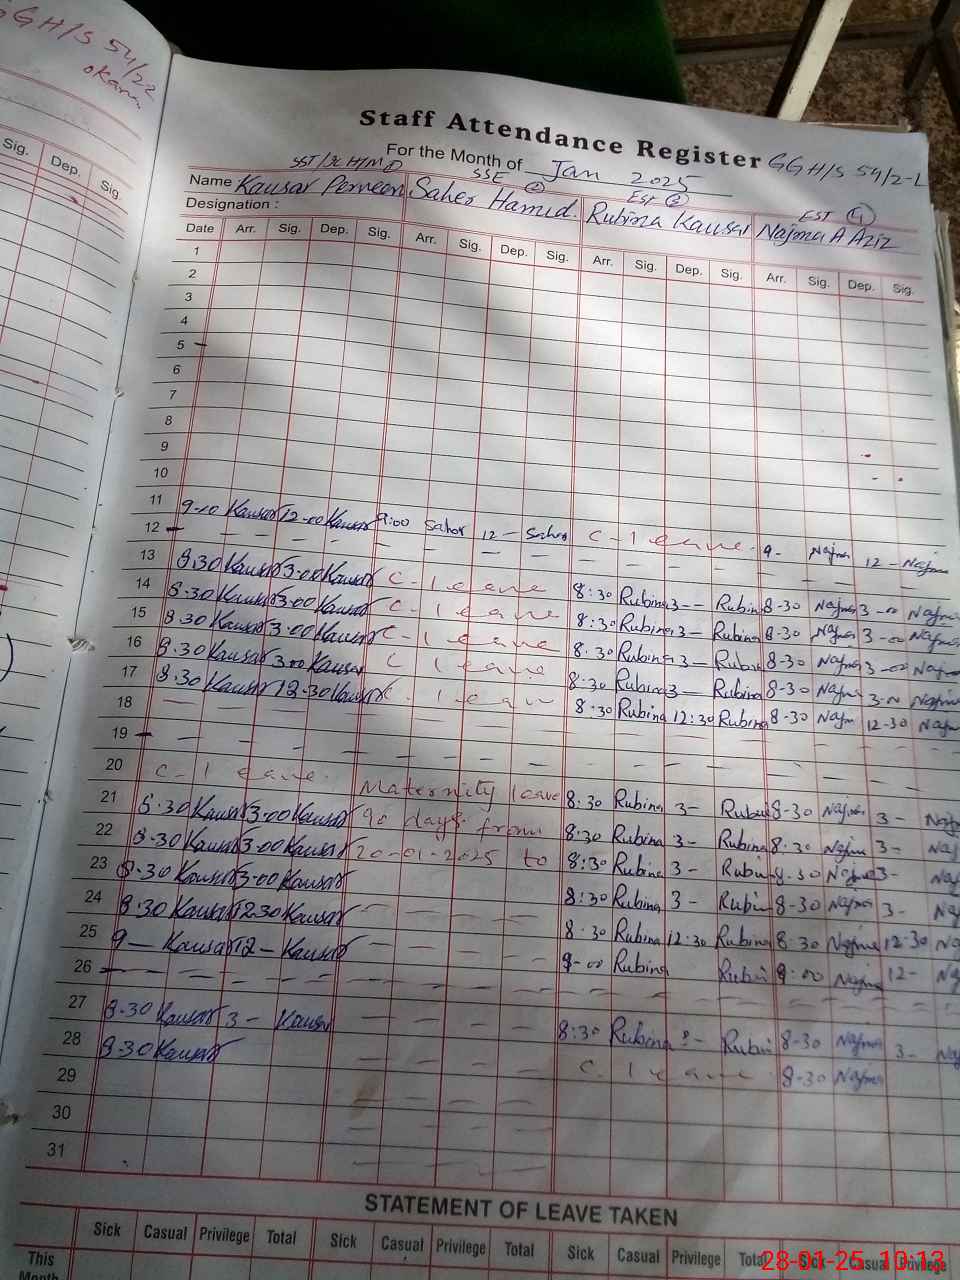 GGH/S 54/22
okara
Sig. Dep. Sig.
Staff Attendance Register GGH/S 54/2-L
For the Month of Jan 2025
SSE EST ② EST ④
Name Kausar Perneen Saher Hamid. Rubina Kausar Najma A Aziz
Designation :
Date Arr. Sig. Dep. Sig. Arr. Sig. Dep. Sig. Arr. Sig. Dep. Sig. Arr. Sig. Dep. Sig.
1
2
3
4
5 -
6
7
8
9
10
11 9-00 Kausar 12-00 Kausar 9:00 Saher 12 - Saher C-leave. 9- Najma 12 - Najma
12 - - - - - - - - - - - -
13 8.30 Kausar 3.00 Kausar C-leave 8:30 Rubina 3- Rubina 8-30 Najma 3-00 Najma
14 8.30 Kausar 3.00 Kausar C-leave 8:30 Rubina 3- Rubina 8-30 Najma 3-00 Najma
15 8.30 Kausar 3.00 Kausar C-leave 8.30 Rubina 3- Rubina 8-30 Najma 3-00 Najma
16 8.30 Kausar 3.00 Kausar C leave 8:30 Rubina 3- Rubina 8-30 Najma 3-00 Najma
17 8.30 Kausar 12.30 Kausar C-leave 8.30 Rubina 12:30 Rubina 8-30 Najma 12-30 Najma
18 - - - - - - - - - - - -
19 - - - - - - - - - - - -
20 C-leave. Maternity leave 8:30 Rubina 3- Rubina 8-30 Najma 3-
21 8.30 Kausar 3.00 Kausar 90 days from 8:30 Rubina 3- Rubina 8:30 Najma 3-
22 8.30 Kausar 3.00 Kausar 20-01-2025 to 8:30 Rubina 3- Rubina 8.30 Najma 3-
23 8.30 Kausar 3.00 Kausar - - - - 8:30 Rubina 3- Rubina 8-30 Najma 3-
24 8.30 Kausar 12.30 Kausar - - - - 8.30 Rubina 12:30 Rubina 8-30 Najma 12-30
25 9- Kausar 12- Kausar - - - - 9-00 Rubina Rubina 9:00 Najma 12-
26 - - - - - - - - - - - -
27 8.30 Kausar 3 - Kausar - - - - 8:30 Rubina Rubina 8-30 Najma 3-
28 8.30 Kausar - - - - C-leave 8-30 Najma
29 - - - -
30 - - - -
31 - - - -
STATEMENT OF LEAVE TAKEN
Sick Casual Privilege Total Sick Casual Privilege Total Sick Casual Privilege Total Sick Casual Privilege
This
Month
28-01-25 10:13